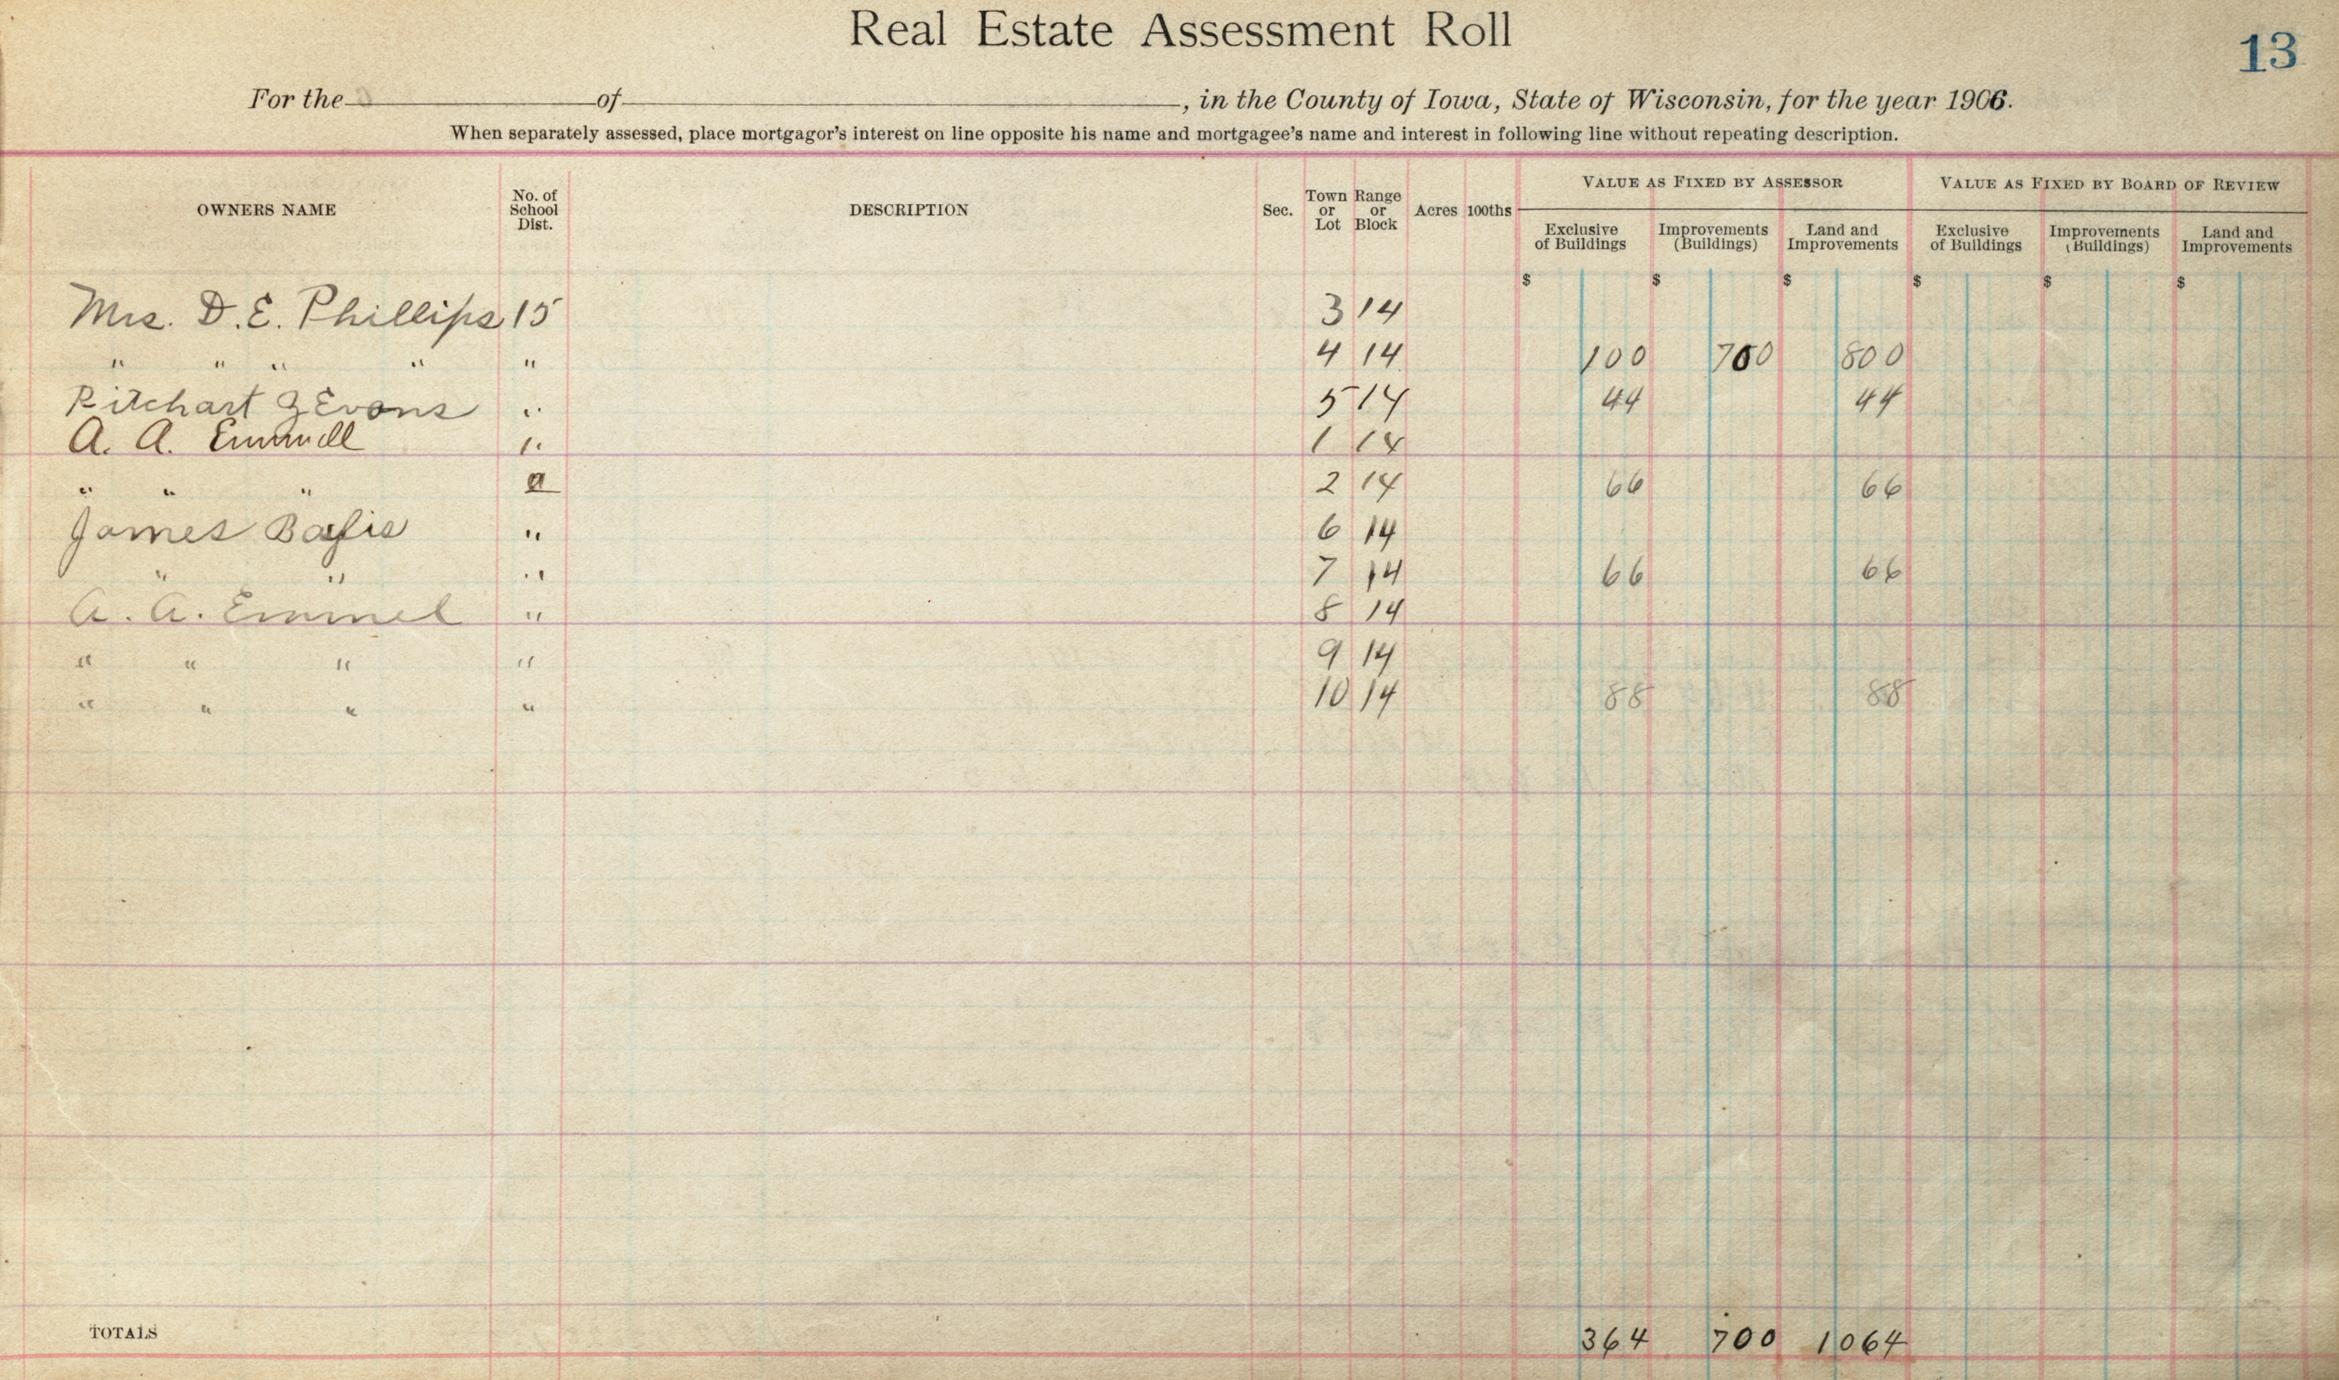 Real Estate Assessment Roll
13
For the of , in the County of Iowa, State of Wisconsin, for the year 1906.
When separately assessed, place mortgagor's interest on line opposite his name and mortgagee's name and interest in following line without repeating description.
OWNERS NAME No. of School Dist. DESCRIPTION Sec. Town or Lot Range or Block Acres 100ths VALUE AS FIXED BY ASSESSOR VALUE AS FIXED BY BOARD OF REVIEW
Exclusive of Buildings Improvements (Buildings) Land and Improvements Exclusive of Buildings Improvements (Buildings) Land and Improvements
$ $ $ $ $ $
Mrs. D. E. Phillips 15 3 14
" " " " " 4 14 100 700 800
Ritchart & Evans " 5 14 44 44
A. A. Emmell " 1 14
" " " " 2 14 66 66
James " 6 14
" " " 7 14 66 66
A. A. Emmel " 8 14
" " " " 9 14
" " " " 10 14 88 88
TOTALS 364 700 1064